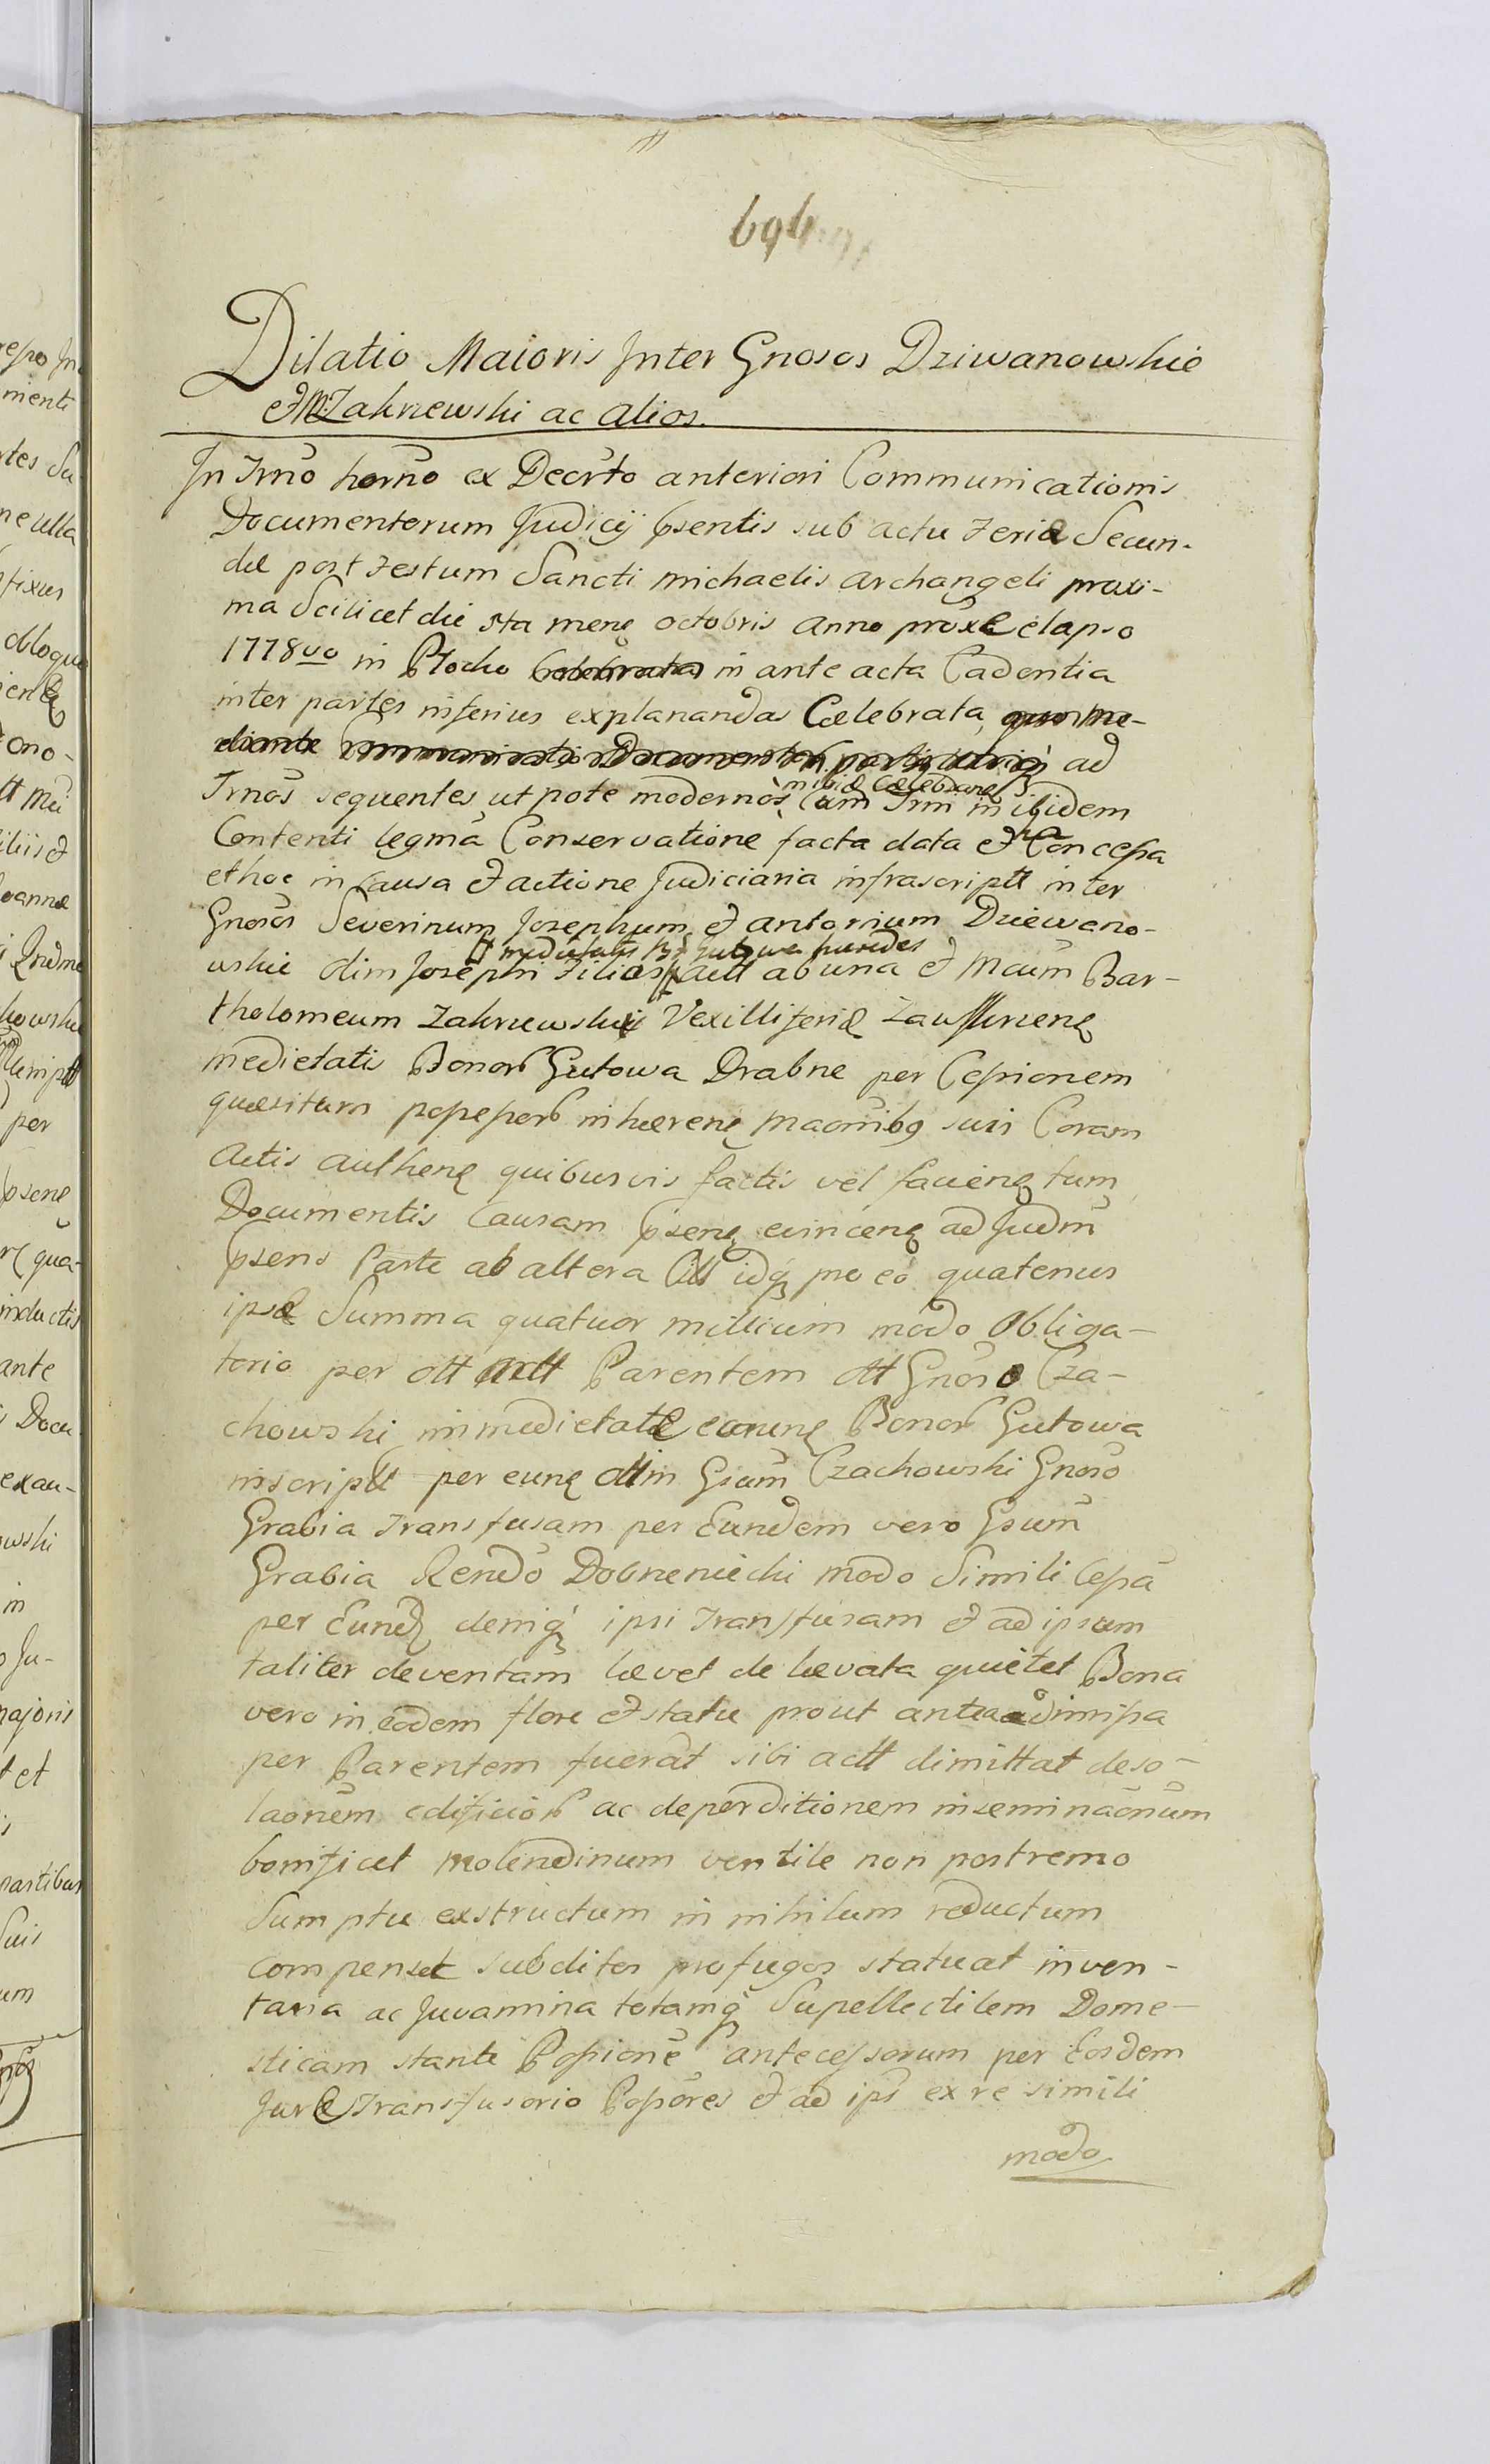 696
Dilatio Maioris Inter Gnosos Dziwanowskie
et M. Zakrzewski ac alios.
In Trno horno ex Decrto anteriori Communicationis
Documentorum Judicij psentis sub actu Feriæ Secun-
dæ post Festum Sancti Michaelis Archangeli proxi-
ma Scilicet die 5ta mens octobris anno proxe elapso
1778vo in Plocko in ante acta Cadentia
inter partes inferius explanandas Cælebrata
ad
Trnos sequentes ut pote modernos in ibidem
Contenti legma Conservatione facta data et Concessa
et hoc in Causa et actione Judiciaria infrascriptt inter
Gnosos Severinum Josephum et antonium Dziewano-
wskie olim Josephi Filios actt ab una et Mcum Bar-
tholomeum Zakrzewski Vexilliferũ Zawskrzens
medietatis Bonor Gutowa Drabne per Cessionem
quæsitam possessor inhærens maonibq suis Coram
Actis authens quibusvis factis vel faciens tum
Documentis Causam psens evincens ad Judm
psens Parte ab altera Citt idq pro eo quatenus
ipse Summa quatuor millium modo Obliga-
torio per ott actt Parentem ott Gnoso Cza-
chowski in medietate earund Bonor Gutowa
inscriptt per eund ottm Gsum Czachowski Gnoso
Grabia Transfusam per Eundem vero Gsum
Grabia Rendo Dobrzeniecki modo Simili Cessa
per Eund deniq ipsi Transfusam et ad ipsum
taliter deventam lævet de lævata quietet Bona
vero in eodem flore et statu prout antea dimissa
per Parentem fuerat sibi actt dimittat deso-
laonem edificior ac deperditionem inseminaonum
bonificet molendinum ventile non postremo
Sumptu exstructum in nihilum reductum
compenset subditos profugos statuat inven-
taria ac Juvamina totamq Supellectilem Dome-
sticam stante Possione antecessorum per Eosdem
Jure Transfusorio Possores et ad ips ex re simili
modo